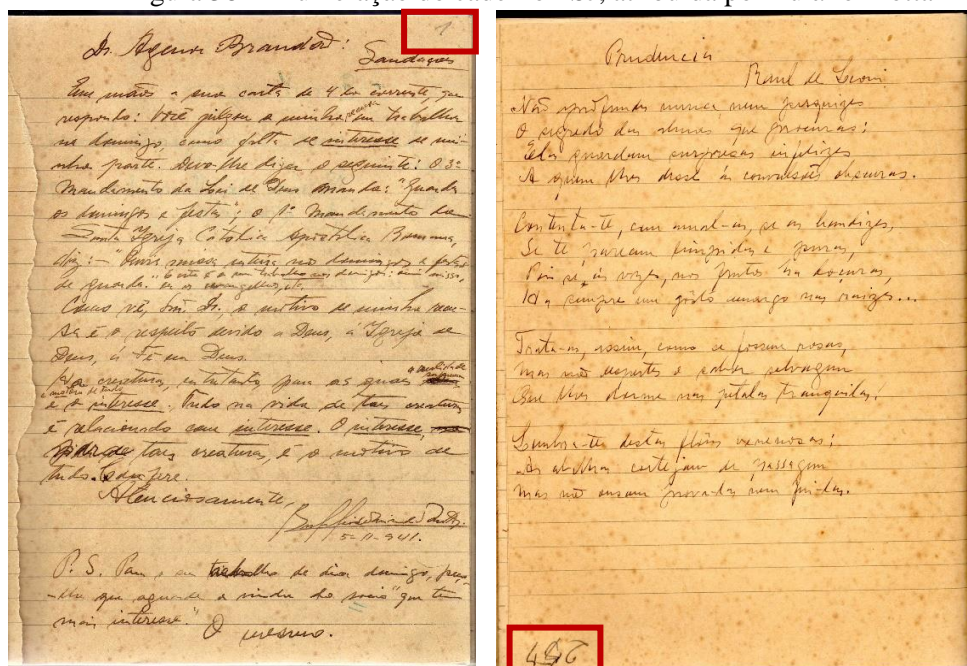 1
Dr. Agenor Brandão:
Saudações
Em mãos a sua carta de 4 do corrente, que
respondo: Você julgou a minha em trabalhar
no domingo, como falta de interesse de mi-
nha parte. Devo-lhe dizer o seguinte: O 3º
mandamento da Lei de Deus manda: "Guardar
os domingos e festas"; o 1º Mandamento da
Santa Igreja Catolica Apostolica Romana,
diz: - "Ouvir missa inteira nos domingos e festas
de guarda.
Como vê, Snr. Dr., o motivo de minha recu-
sa é o respeito devido a Deus, á Igreja de
Deus, á Fé em Deus.
Ha creaturas, entretanto para as quais
é o interesse. Tudo na vida de tais creaturas
é relacionado com interesse. O interesse,
de tais creaturas, é o motivo de
tudo.
Atenciosamente,
5-11-941.
P. S. Para o trabalho de dia domingo,
que aguarde a vinda do socio "que tem
mais interesse."
O mesmo.
Prudencia
Raul de Leoni
Não aprofundes nunca, nem pesquizes
O segredo das almas que procuras:
Elas guardam surprezas infelizes
A quem lhes desce ás convulsões obscuras.
Contenta-te, com amal-as, se as bendizes,
Se te parecem limpidas e puras,
Pois se, ás vezes, nos frutos ha doçuras,
Ha sempre um gôsto amargo nas raizes...
Trata-as, assim, como se fossem rosas,
Mas não despertes o sabor selvagem
Que lhes dorme nas petalas tranquilas,
Lembra-te destas flôres venenosas:
As abelhas cortejam de passagem
Mas não ousam prova-las nem feri-las.